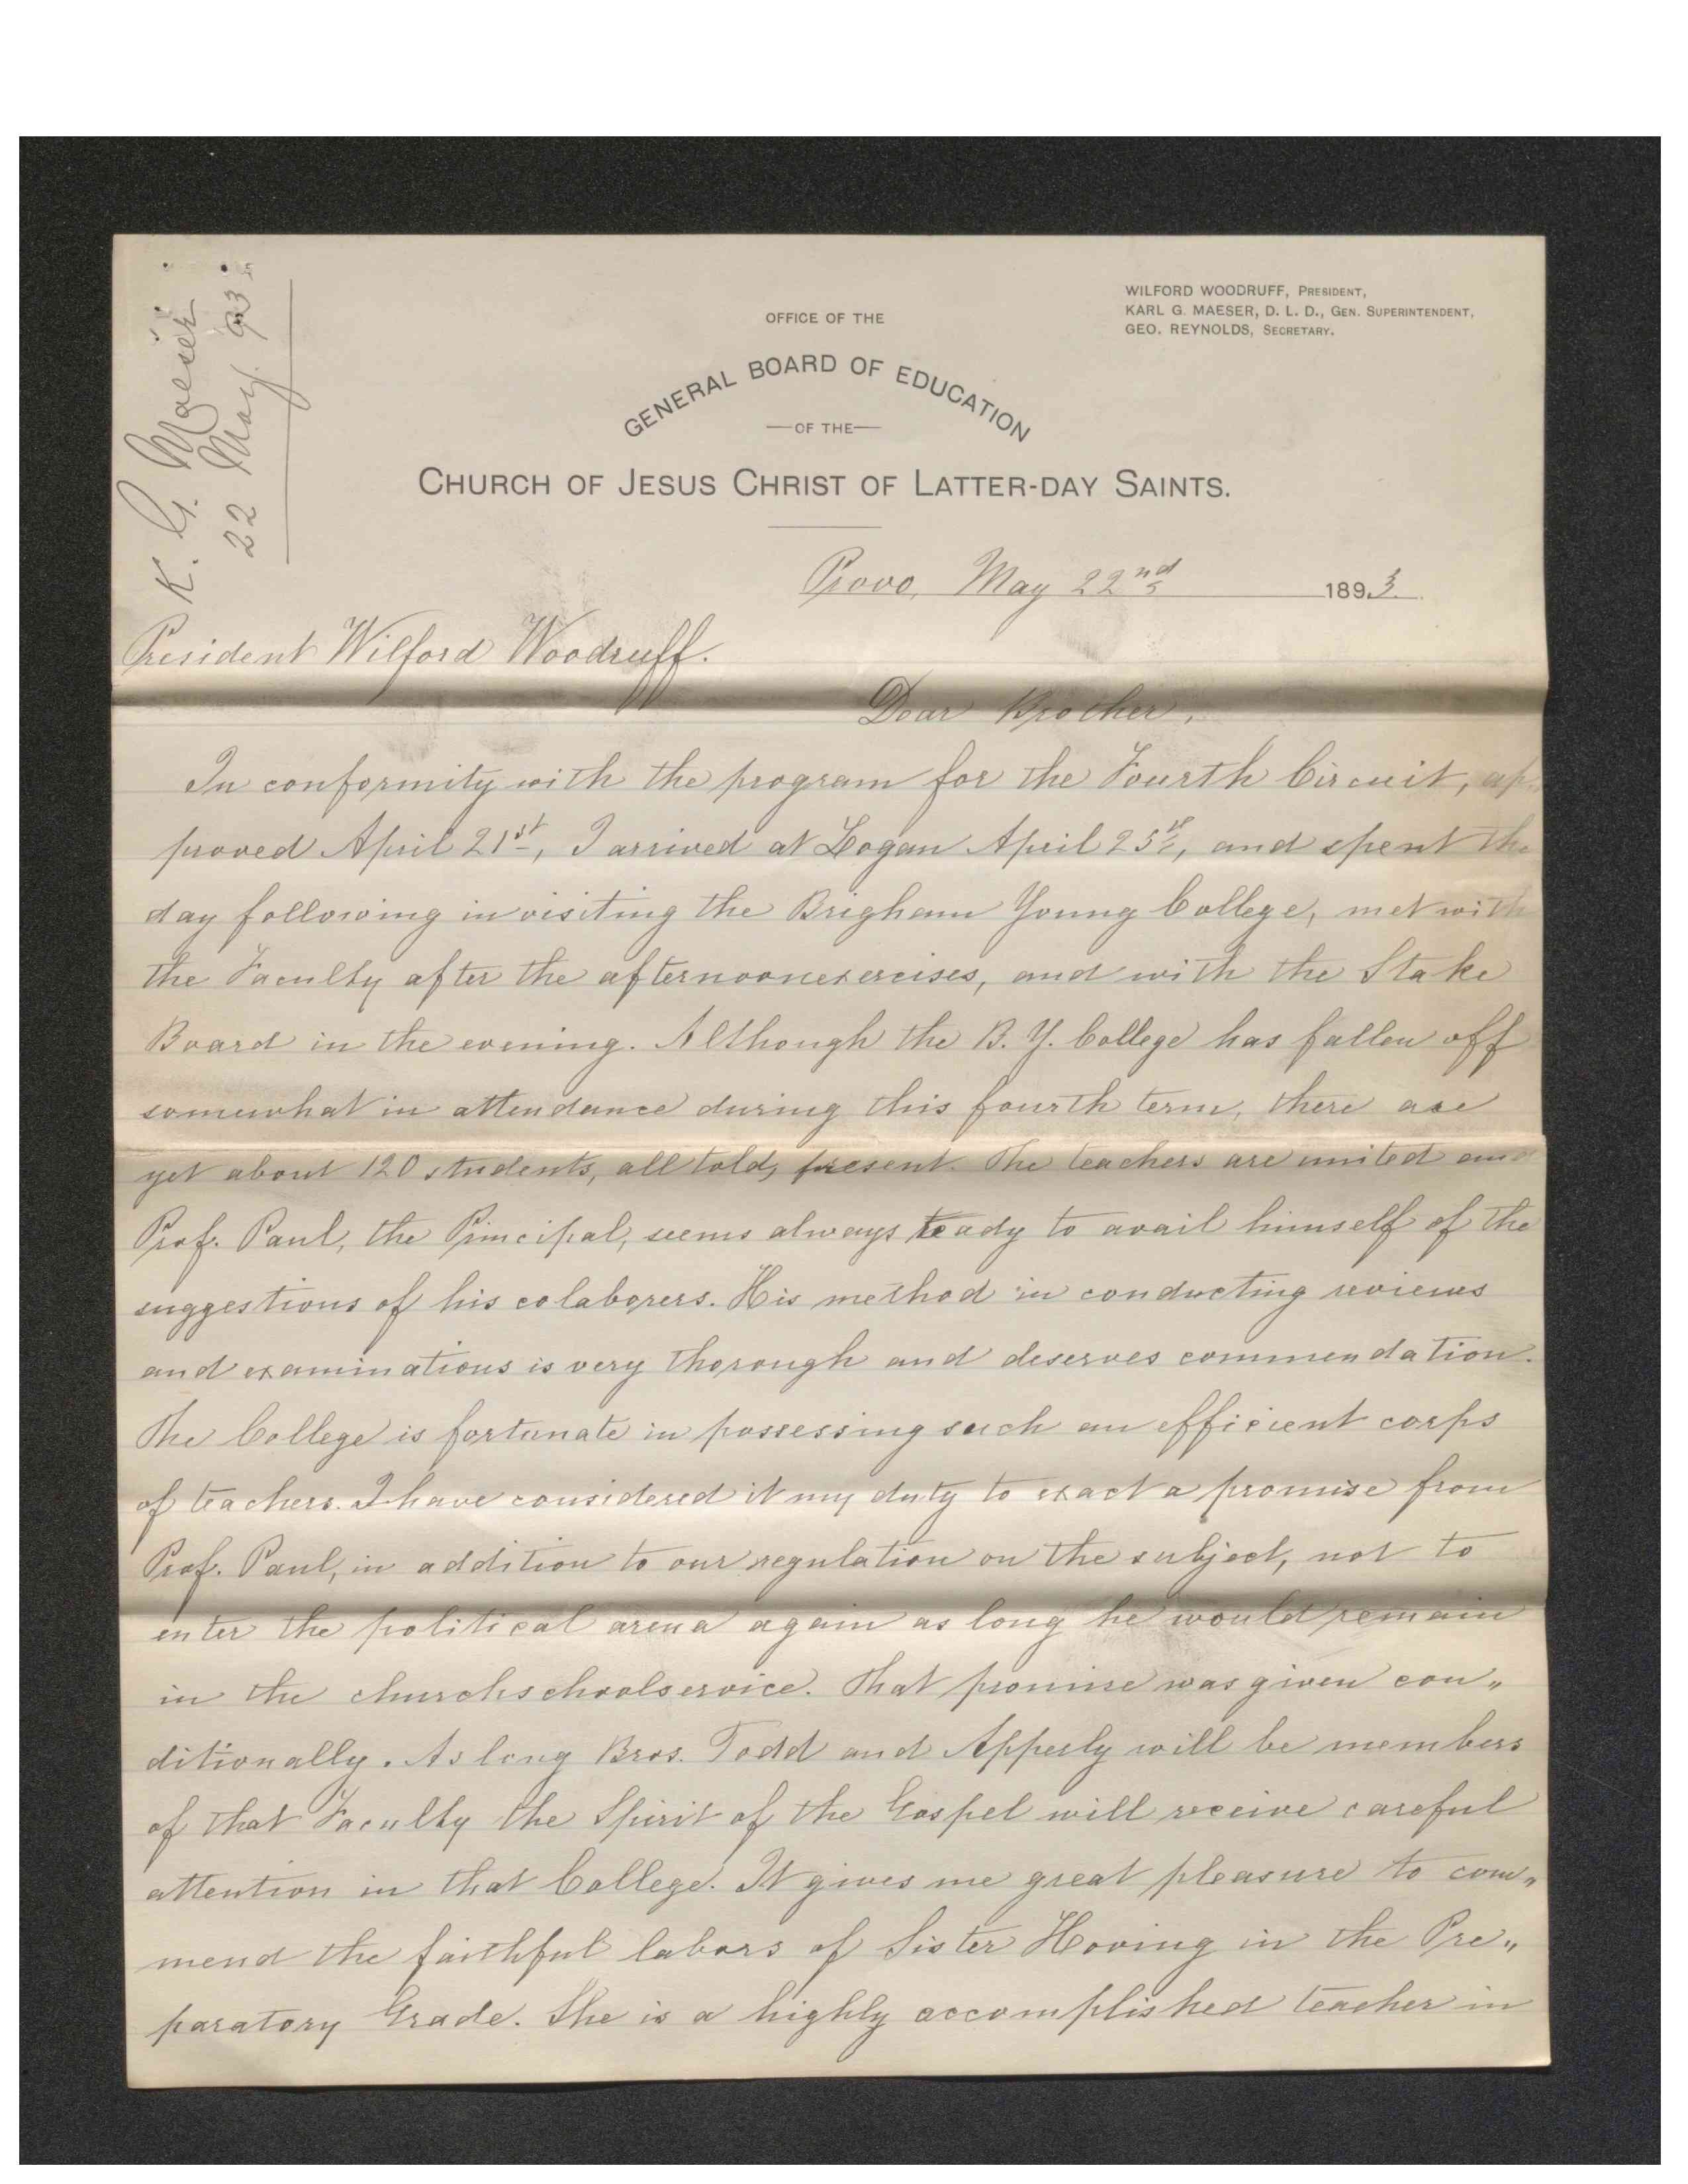 K. G. Maeser
22 May. 93.
WILFORD WOODRUFF, PRESIDENT,
KARL G. MAESER, D. L. D., GEN. SUPERINTENDENT,
GEO. REYNOLDS, SECRETARY.
OFFICE OF THE
GENERAL BOARD OF EDUCATION
—OF THE—
CHURCH OF JESUS CHRIST OF LATTER-DAY SAINTS.
Provo, May 22nd 1893.
President Wilford Woodruff.
Dear Brother,
In conformity with the program for the Fourth Circuit, ap-
proved April 21st, I arrived at Logan April 25th, and spent the
day following in visiting the Brigham Young College, met with
the Faculty after the afternoonexercises, and with the Stake
Board in the evening. Although the B. Y. College has fallen off
somewhat in attendance during this fourth term, there are
yet about 120 students, all told, present. The teachers are united and
Prof. Paul, the Principal, seems always ready to avail himself of the
suggestions of his colaborers. His method in conducting reviews
and examinations is very thorough and deserves commendation.
The College is fortunate in possessing such an efficient corps
of teachers. I have considered it my duty to exact a promise from
Prof. Paul, in addition to our regulation on the subject, not to
enter the political arena again as long he would remain
in the churchschoolservice. That promise was given con„
ditionally. As long Bros. Todd and Apperly will be members
of that Faculty the Spirit of the Gospel will receive careful
attention in that College. It gives me great pleasure to com„
mend the faithful labors of Sister Hoving in the Pre„
paratory Grade. She is a highly accomplished teacher in